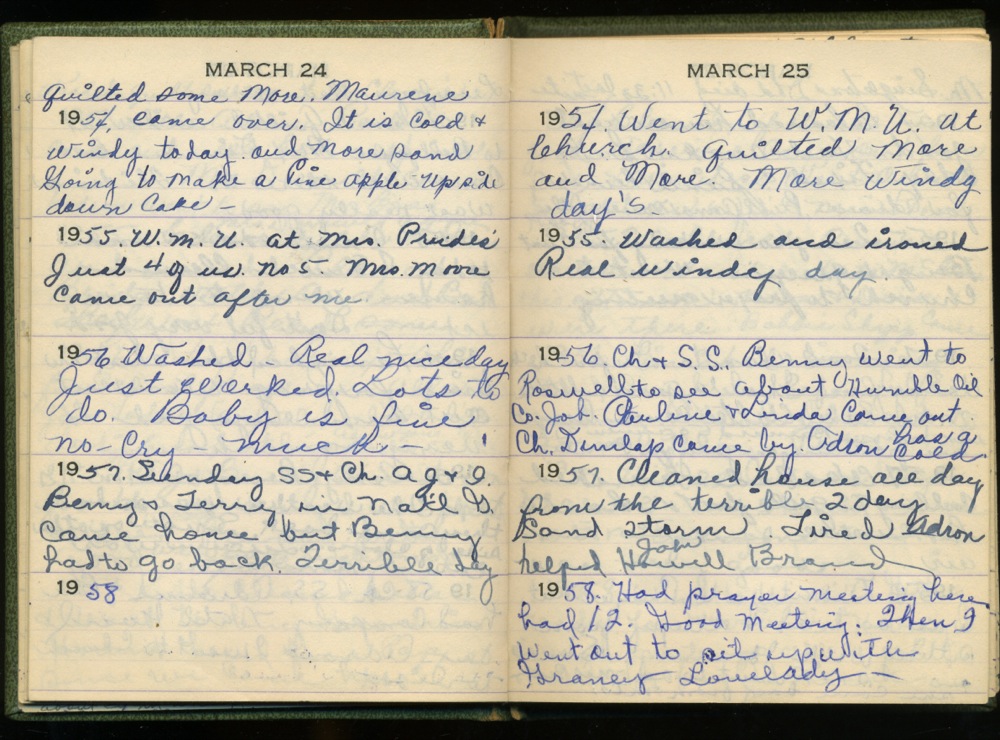 MARCH 24
Quilted some More. Maurene
1954. came over. It is cold &
windy today. and more sand
Going to make a Pine apple Upside
down Cake -
1955. W.M.U. at Mrs. Prudes'
Just 4 of us. No 5 Mrs. Moore
came out after me
1956 Washed - Real nice day
Just worked. Lots to
do. Baby is fine
no - Cry - much -
1957. Sunday SS & Ch. A J & I.
Benny & Terry in Nat'l G.
came home but Benny
had to go back. Terrible day
1958
MARCH 25
1954. Went to W.M.U. at
Church. Quilted More
and More. More windy
day's.
1955. Washed and ironed
Real windy day.
1956. Ch & S.S. Benny went to
Roswell to see about Humble Oil
Co. Job. Pauline & Linda Came out
Ch. Dunlap came by. Adron has a
cold.
1957. Cleaned house all day
from the terrible 2 day
Sand storm. Tired Adron
helped John Howell Brand
1958. Had prayer meeting here
had 12. Good Meeting. Then I
went out to sit up with
Graney Lovelady -